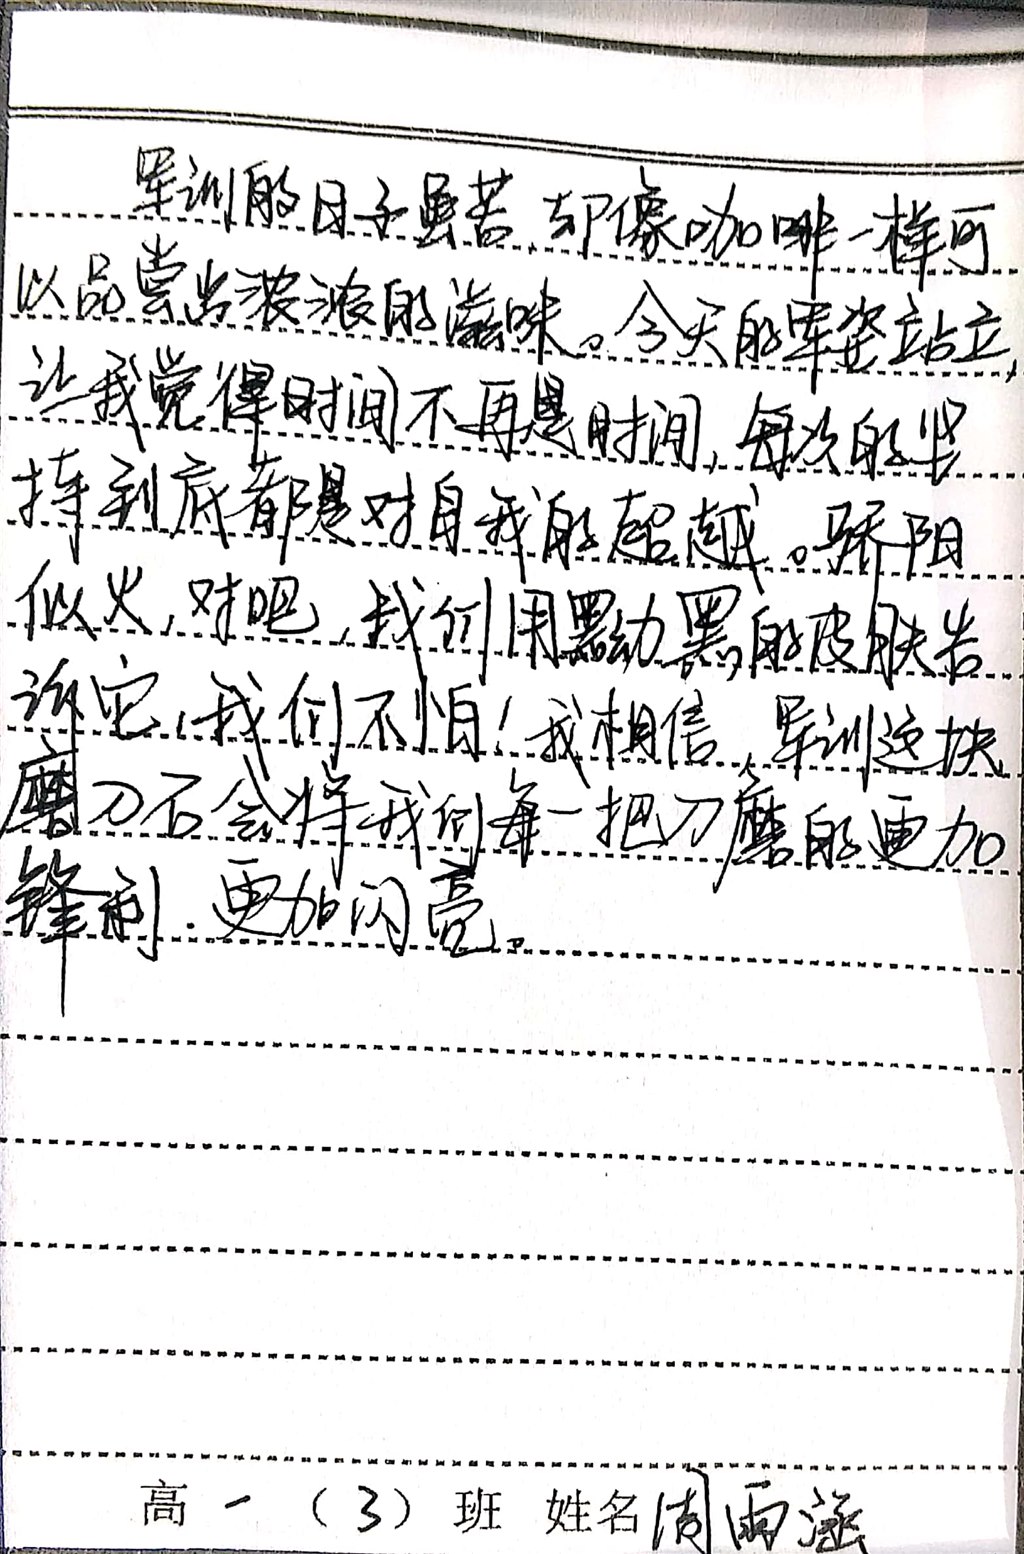 军训的日子虽苦,却像咖啡一样可
以品尝出浓浓的滋味。今天的军姿站立,
让我觉得时间不再是时间,每次的坚
持到底都是对自我的超越。骄阳
似火,对吧,我们用黝黑的皮肤告
诉它,我们不怕!我相信,军训这块
磨刀石会将我们每一把刀磨的更加
锋利.更加闪亮。
高一(3)班 姓名周雨涵